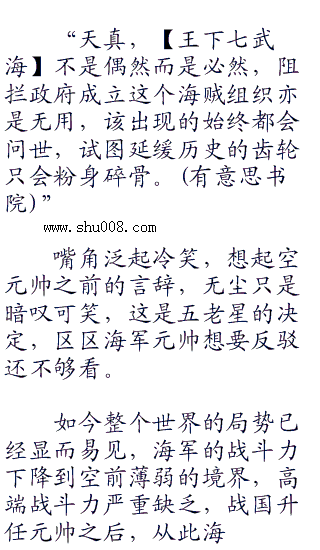 “天真，【王下七武
海】不是偶然而是必然，阻
拦政府成立这个海贼组织亦
是无用，该出现的始终都会
问世，试图延缓历史的齿轮
只会粉身碎骨。(有意思书
院)”
www.shu008.com
嘴角泛起冷笑，想起空
元帅之前的言辞，无尘只是
暗叹可笑，这是五老星的决
定，区区海军元帅想要反驳
还不够看。
如今整个世界的局势已
经显而易见，海军的战斗力
下降到空前薄弱的境界，高
端战斗力严重缺乏，战国升
任元帅之后，从此海